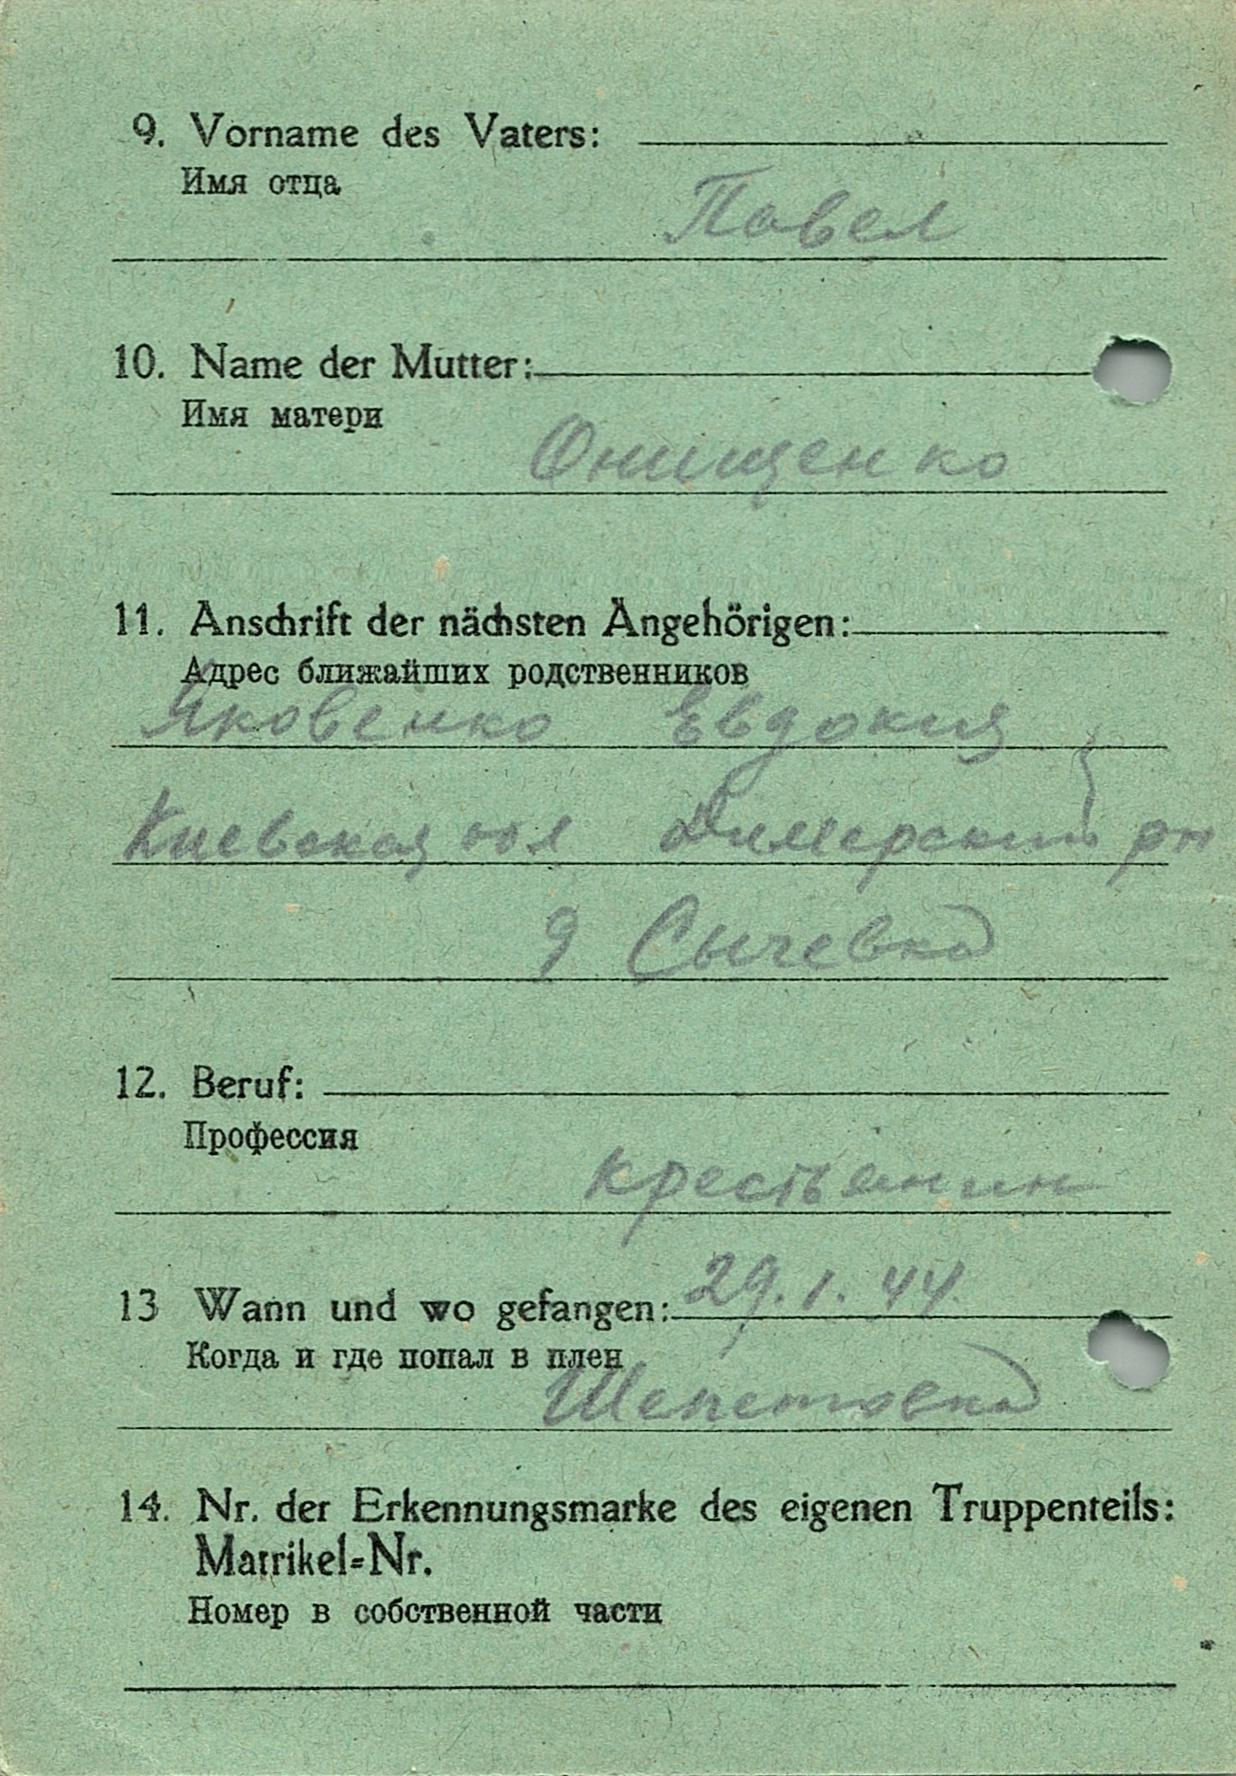 9. Vorname des Vaters:
Имя отца
Павел
10. Name der Mutter:
Имя матери
Онищенко
11. Anschrift der nächsten Angehörigen:
Адрес ближайших родственников
Яковенко Евдокия
Киевская обл Димерский рн
д Сычевка
12. Beruf:
Профессия
крестьянин
13 Wann und wo gefangen: 29.1.44.
Когда и где попал в плен
Шепетовка
14. Nr. der Erkennungsmarke des eigenen Truppenteils:
Matrikel=Nr.
Номер в собственной части